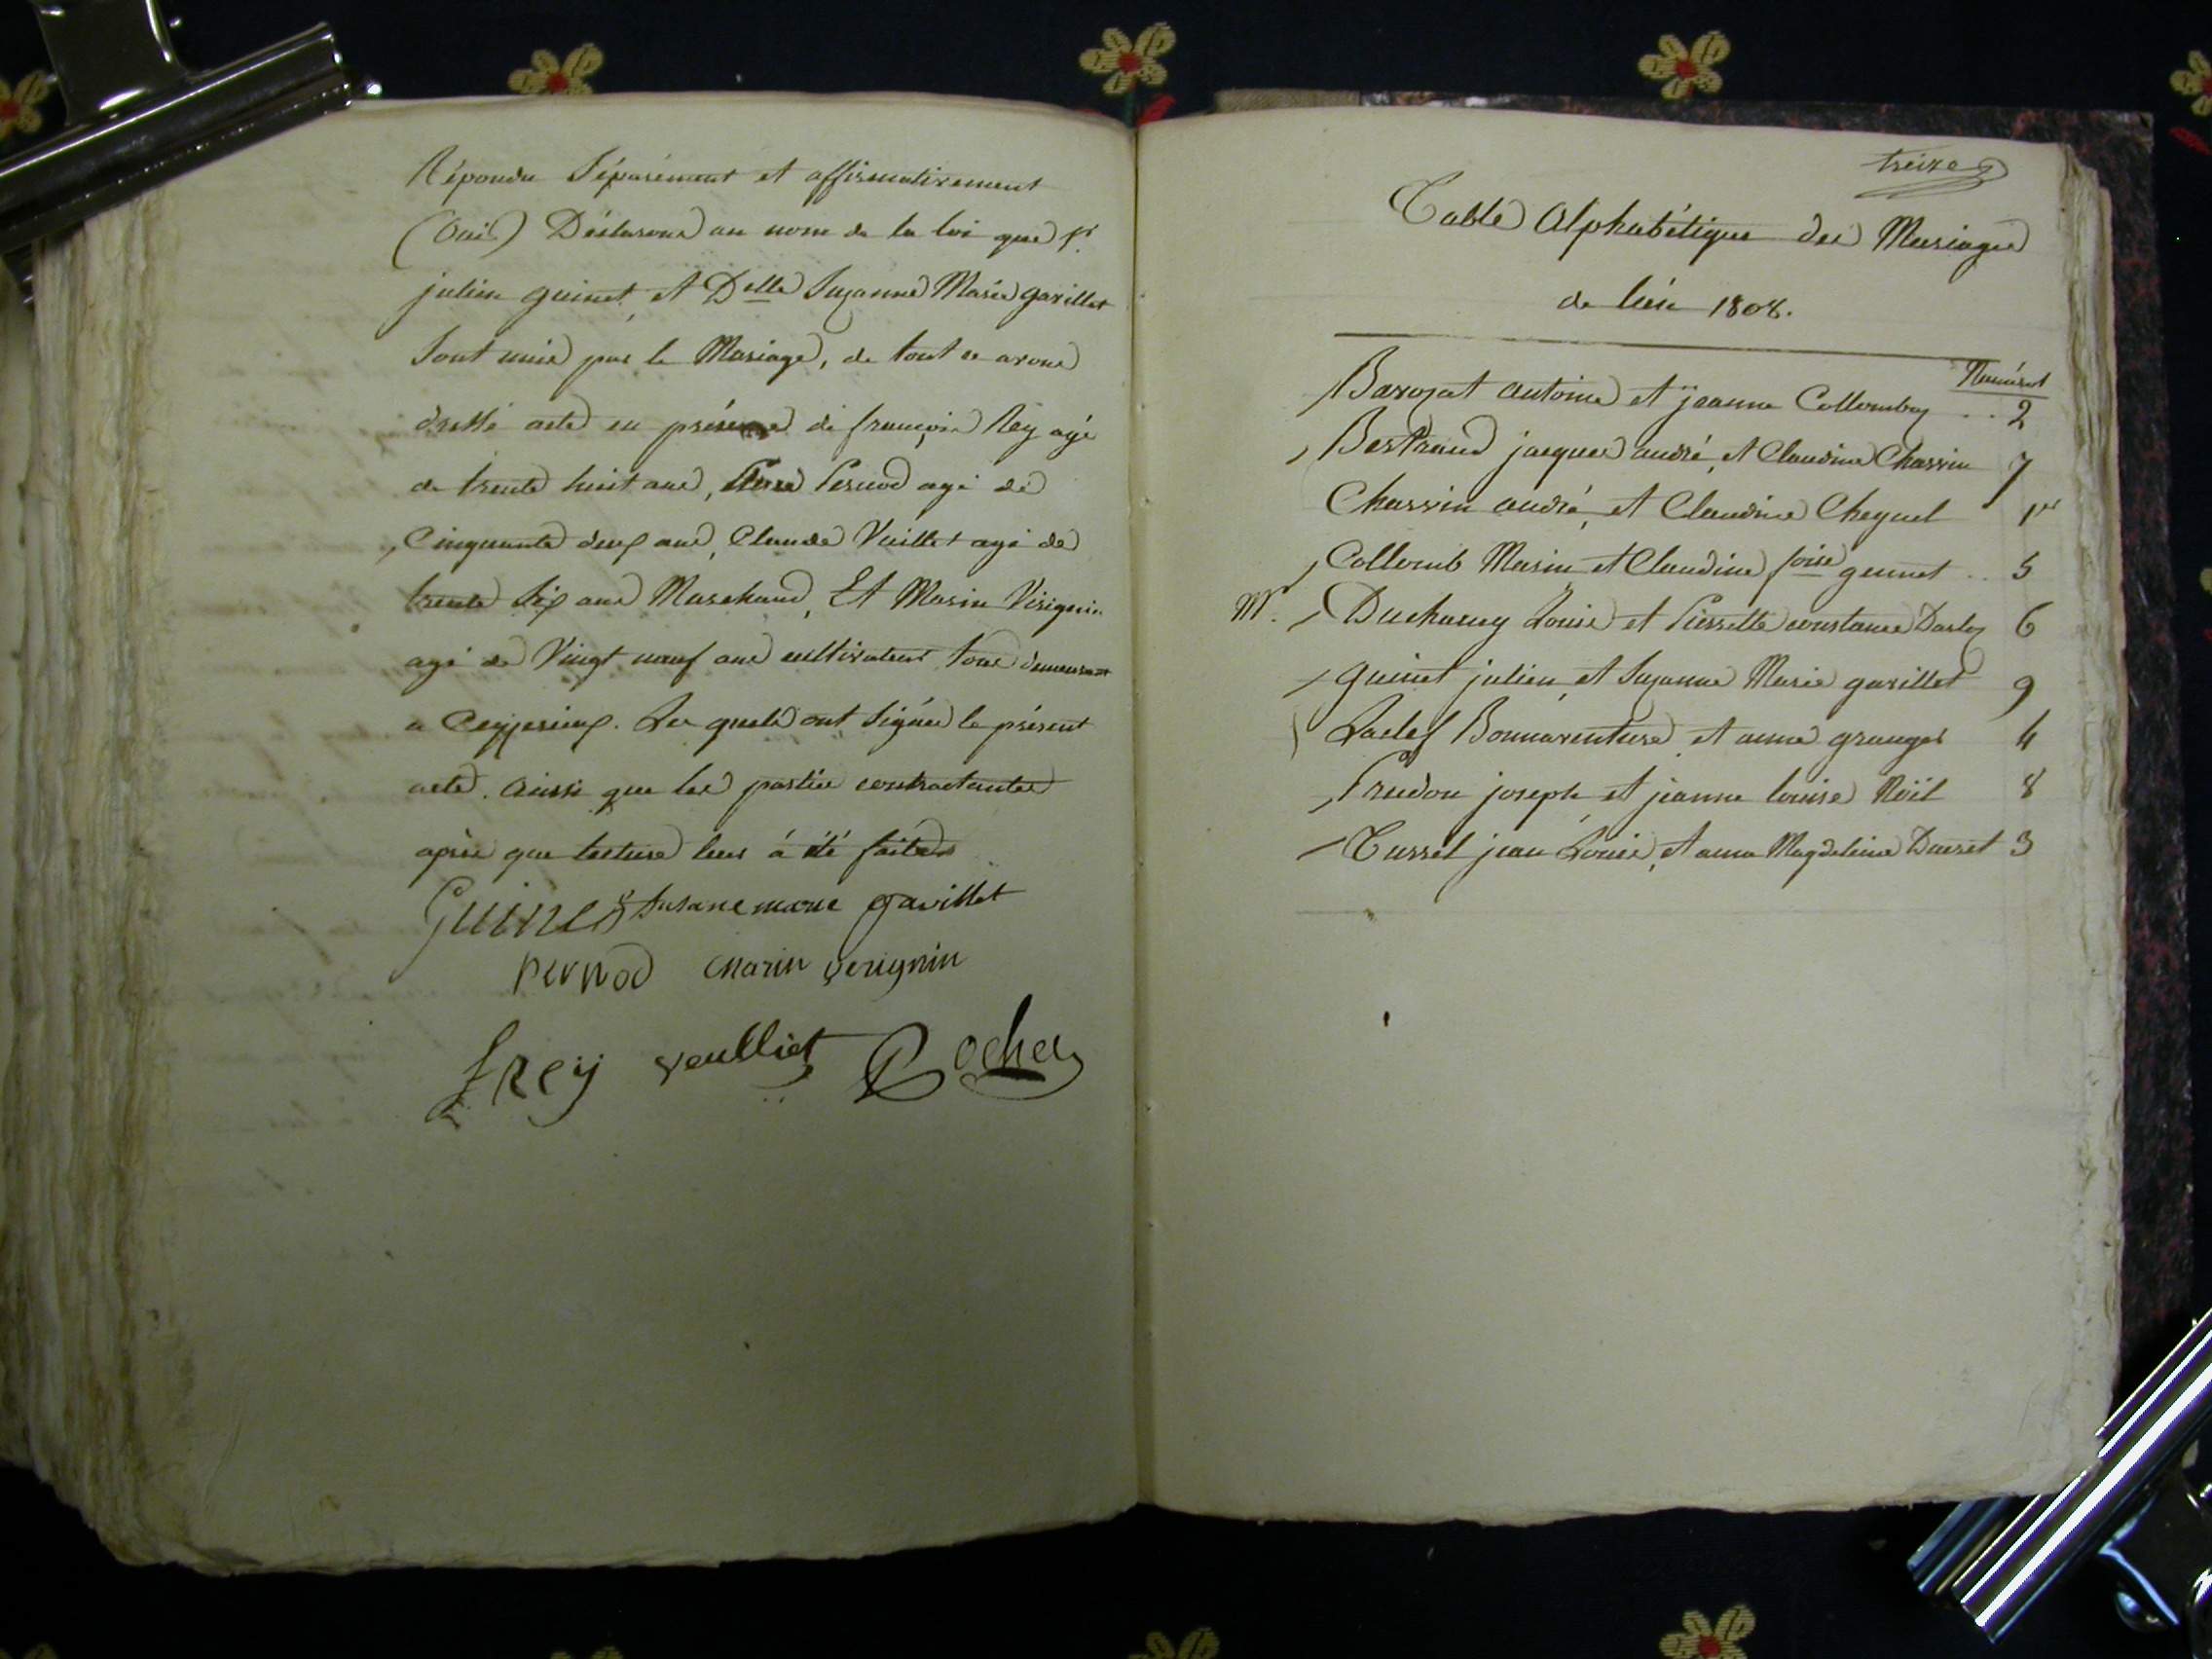 Répondu Séparément et affirmativement
(Oui) Déclarons au nom de la loi que Sr.
julien guinet, et Delle Suzanne Marie gavillet
Sont unis par le Mariage, de tout ce avons
dressé acte en présence de françois Rey agé
de trente huit ans, Pernod agé de
Cinquante deux ans, Claude Vuillet agé de
trente Six ans Marchand, Et Marin Verignin
agé de Vingt neuf ans cultivateur tous demeurant
a Ceyzerieux. Les quels ont Signés le présent
acte. Ainsi que les parties contractantes
après que lecture leur á été faite
Guinet Susane marie gavillet
pernod marin verignin
f Rey veulliet Rochex
treize
Table Alphabétique des Mariages
de l'an 1808.
Numéros
Barozat Antoine et jeanne Collomby .. 2
Bertrand jacques andré, et Claudine Chassin 7
Chassin andré, et Claudine Cheynel 1er
Collomb Marin, et Claudine foise guinet .. 5
M. Ducharney Louis et Pierrette constance Darloz 6
guinet julien, et Suzanne Marie gavillet 9
Laclef Bonnaventure et anne granger 4
Prudon joseph et jeanne louise Noël 8
Tussel jean Louis, et anne Magdeleine Duret 3